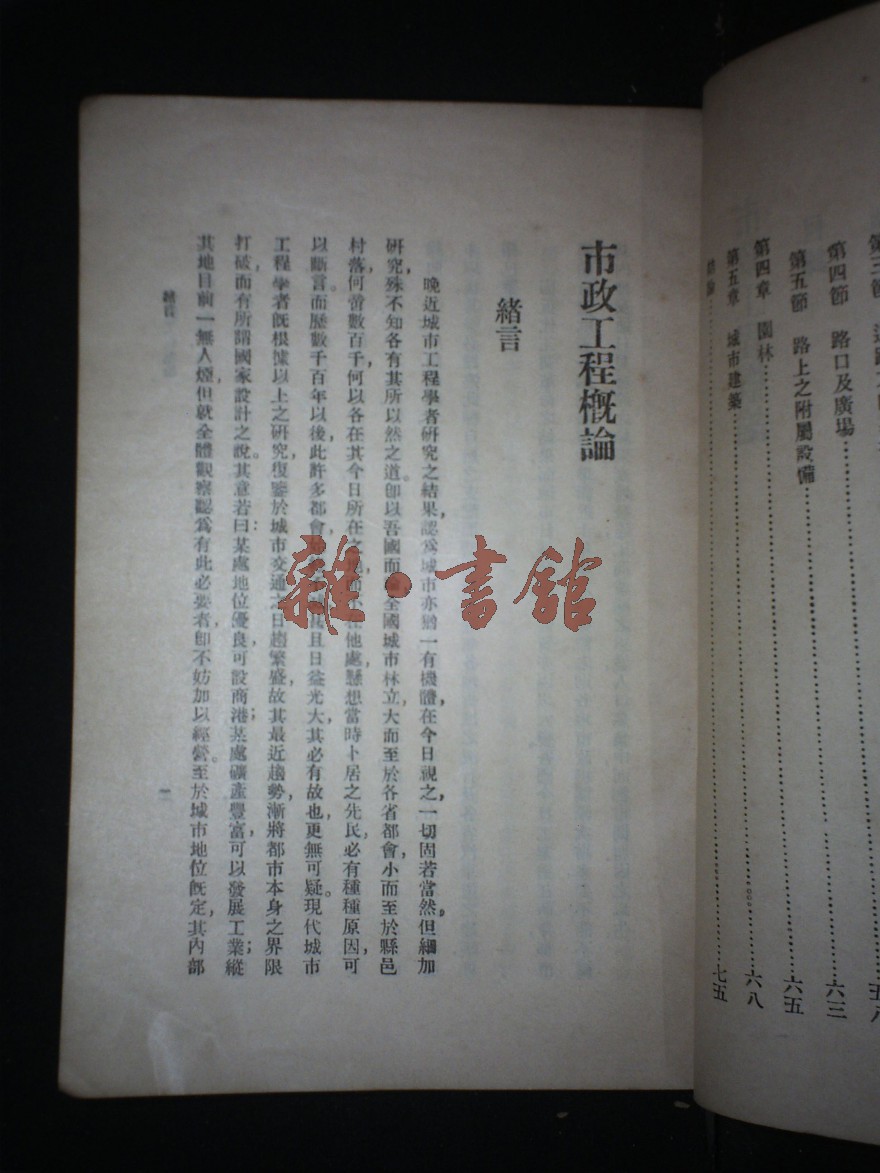 第四節 路口及廣場……六三
第五節 路上之附屬設備……六五
第四章 園林……六八
第五章 城市建築……七五
市政工程概論
緒言
晚近城市工程學者研究之結果，認爲城市亦猶一有機體，在今日視之，一切固若當然，但細加
研究，殊不知各有其所以然之道。卽以吾國而論，全國城市林立，大而至於各省都會，小而至於縣邑
村落，何啻數百千，何以各在其今日所在之 他處，懸想當時卜居之先民，必有種種原因，可
以斷言。而歷數千百年以後，此許多都會 且日益光大，其必有故也，更無可疑。現代城市
工程學者既根據以上之研究，復鑒於城市交通之日趨繁盛，故其最近趨勢，漸將都市本身之界限
打破，而有所謂國家設計之說。其意若曰：某處地位優良，可設商港；某處礦產豐富，可以發展工業；縱
其地目前一無人煙，但就全體觀察，認爲有此必要者，卽不妨加以經營。至於城市地位既定，其內部
緒言
一
雜·書館